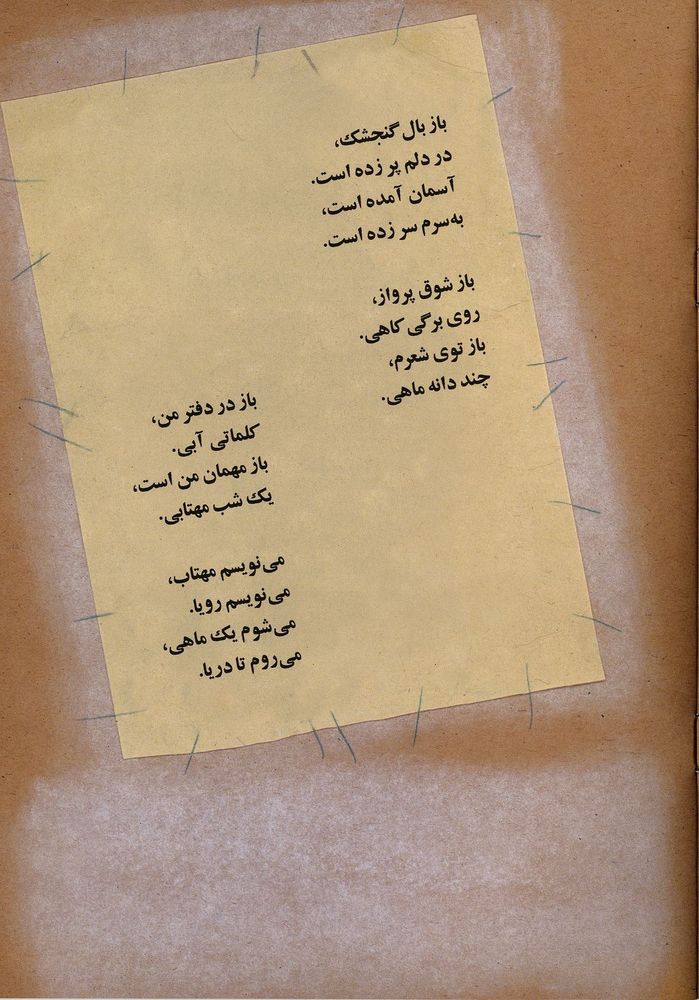 باز بال گنجشک،
در دلم پر زده است.
آسمان آمده است،
به‌سرم سر زده است.
باز شوق پرواز،
روی برگی کاهی.
باز توی شعرم،
چند دانه ماهی.
باز در دفتر من،
کلماتی آبی.
باز مهمان من است،
یک شب مهتابی.
می‌نویسم مهتاب،
می‌نویسم رویا.
می‌شوم یک ماهی،
می‌روم تا دریا.